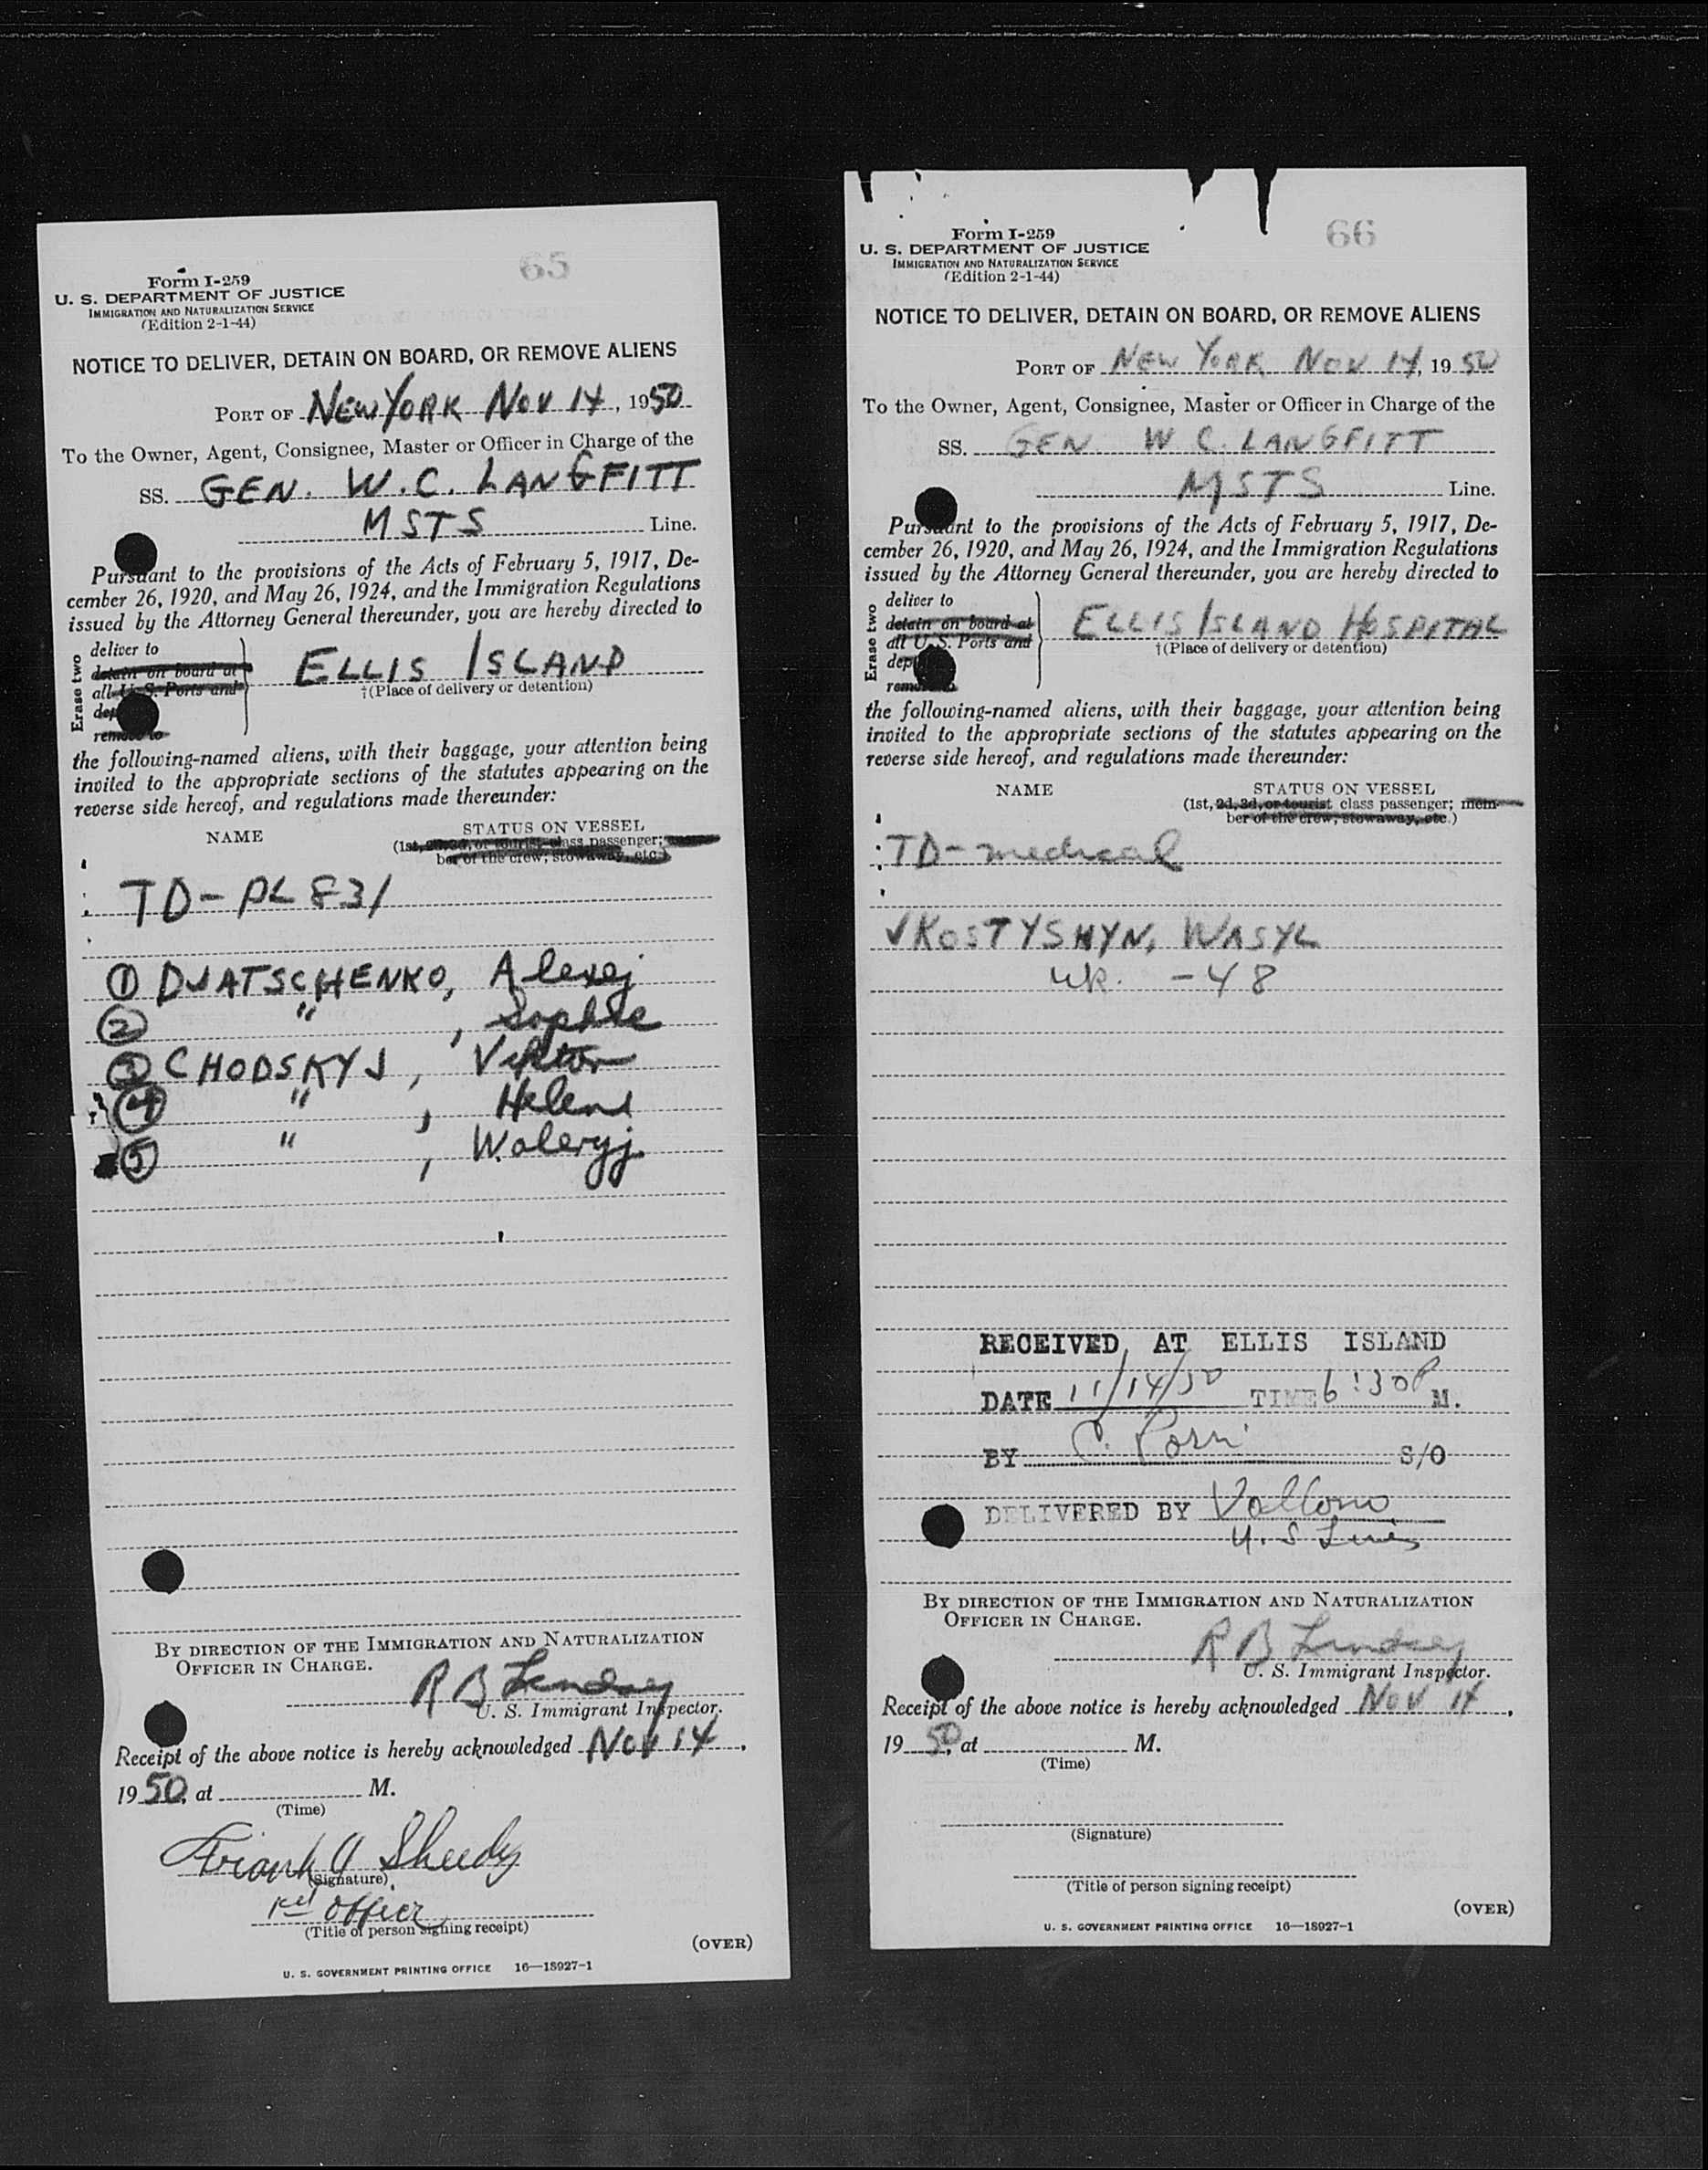 65
Form I-259
U. S. DEPARTMENT OF JUSTICE
IMMIGRATION AND NATURALIZATION SERVICE
(Edition 2-1-44)
NOTICE TO DELIVER, DETAIN ON BOARD, OR REMOVE ALIENS
PORT OF NEW YORK NOV 14, 1950
To the Owner, Agent, Consignee, Master or Officer in Charge of the
SS. GEN. W.C. LANGFITT
MSTS Line.
Pursuant to the provisions of the Acts of February 5, 1917, De-
cember 26, 1920, and May 26, 1924, and the Immigration Regulations
issued by the Attorney General thereunder, you are hereby directed to
Erase two
deliver to
detain on board at
all U. S. Ports and
remove to
ELLIS ISLAND
†(Place of delivery or detention)
the following-named aliens, with their baggage, your attention being
invited to the appropriate sections of the statutes appearing on the
reverse side hereof, and regulations made thereunder:
NAME STATUS ON VESSEL
(1st, 2d, 3d, or tourist class passenger;
ber of the crew, stowaway, etc.)
TD - PL 831
① DJATSCHENKO, Alexej
② " , Sophie
③ CHODSKYJ, Viktor
④ " , Helena
⑤ " , Waleryj
BY DIRECTION OF THE IMMIGRATION AND NATURALIZATION
OFFICER IN CHARGE.
R B Lindsey
U. S. Immigrant Inspector.
Receipt of the above notice is hereby acknowledged NOV 14,
1950, at M.
(Time)
Frank J Sheedy
(Signature)
1st Officer
(Title of person signing receipt)
(OVER)
U. S. GOVERNMENT PRINTING OFFICE 16—18927-1
66
Form I-259
U. S. DEPARTMENT OF JUSTICE
IMMIGRATION AND NATURALIZATION SERVICE
(Edition 2-1-44)
NOTICE TO DELIVER, DETAIN ON BOARD, OR REMOVE ALIENS
PORT OF NEW YORK NOV 14, 1950
To the Owner, Agent, Consignee, Master or Officer in Charge of the
SS. GEN. W C. LANGFITT
MSTS Line.
Pursuant to the provisions of the Acts of February 5, 1917, De-
cember 26, 1920, and May 26, 1924, and the Immigration Regulations
issued by the Attorney General thereunder, you are hereby directed to
Erase two
deliver to
detain on board at
all U. S. Ports and
remove to
ELLIS ISLAND HOSPITAL
†(Place of delivery or detention)
the following-named aliens, with their baggage, your attention being
invited to the appropriate sections of the statutes appearing on the
reverse side hereof, and regulations made thereunder:
NAME STATUS ON VESSEL
(1st, 2d, 3d, or tourist class passenger; mem-
ber of the crew, stowaway, etc.)
TD - medical
√ KOSTYSHYN, WASYL
uk. - 48
RECEIVED AT ELLIS ISLAND
DATE 11/14/50 TIME 6:30 P M.
BY S/O
DELIVERED BY
U.S Lines
BY DIRECTION OF THE IMMIGRATION AND NATURALIZATION
OFFICER IN CHARGE.
R B Lindsey
U. S. Immigrant Inspector.
Receipt of the above notice is hereby acknowledged NOV 14,
1950, at M.
(Time)
(Signature)
(Title of person signing receipt)
(OVER)
U. S. GOVERNMENT PRINTING OFFICE 16—18927-1